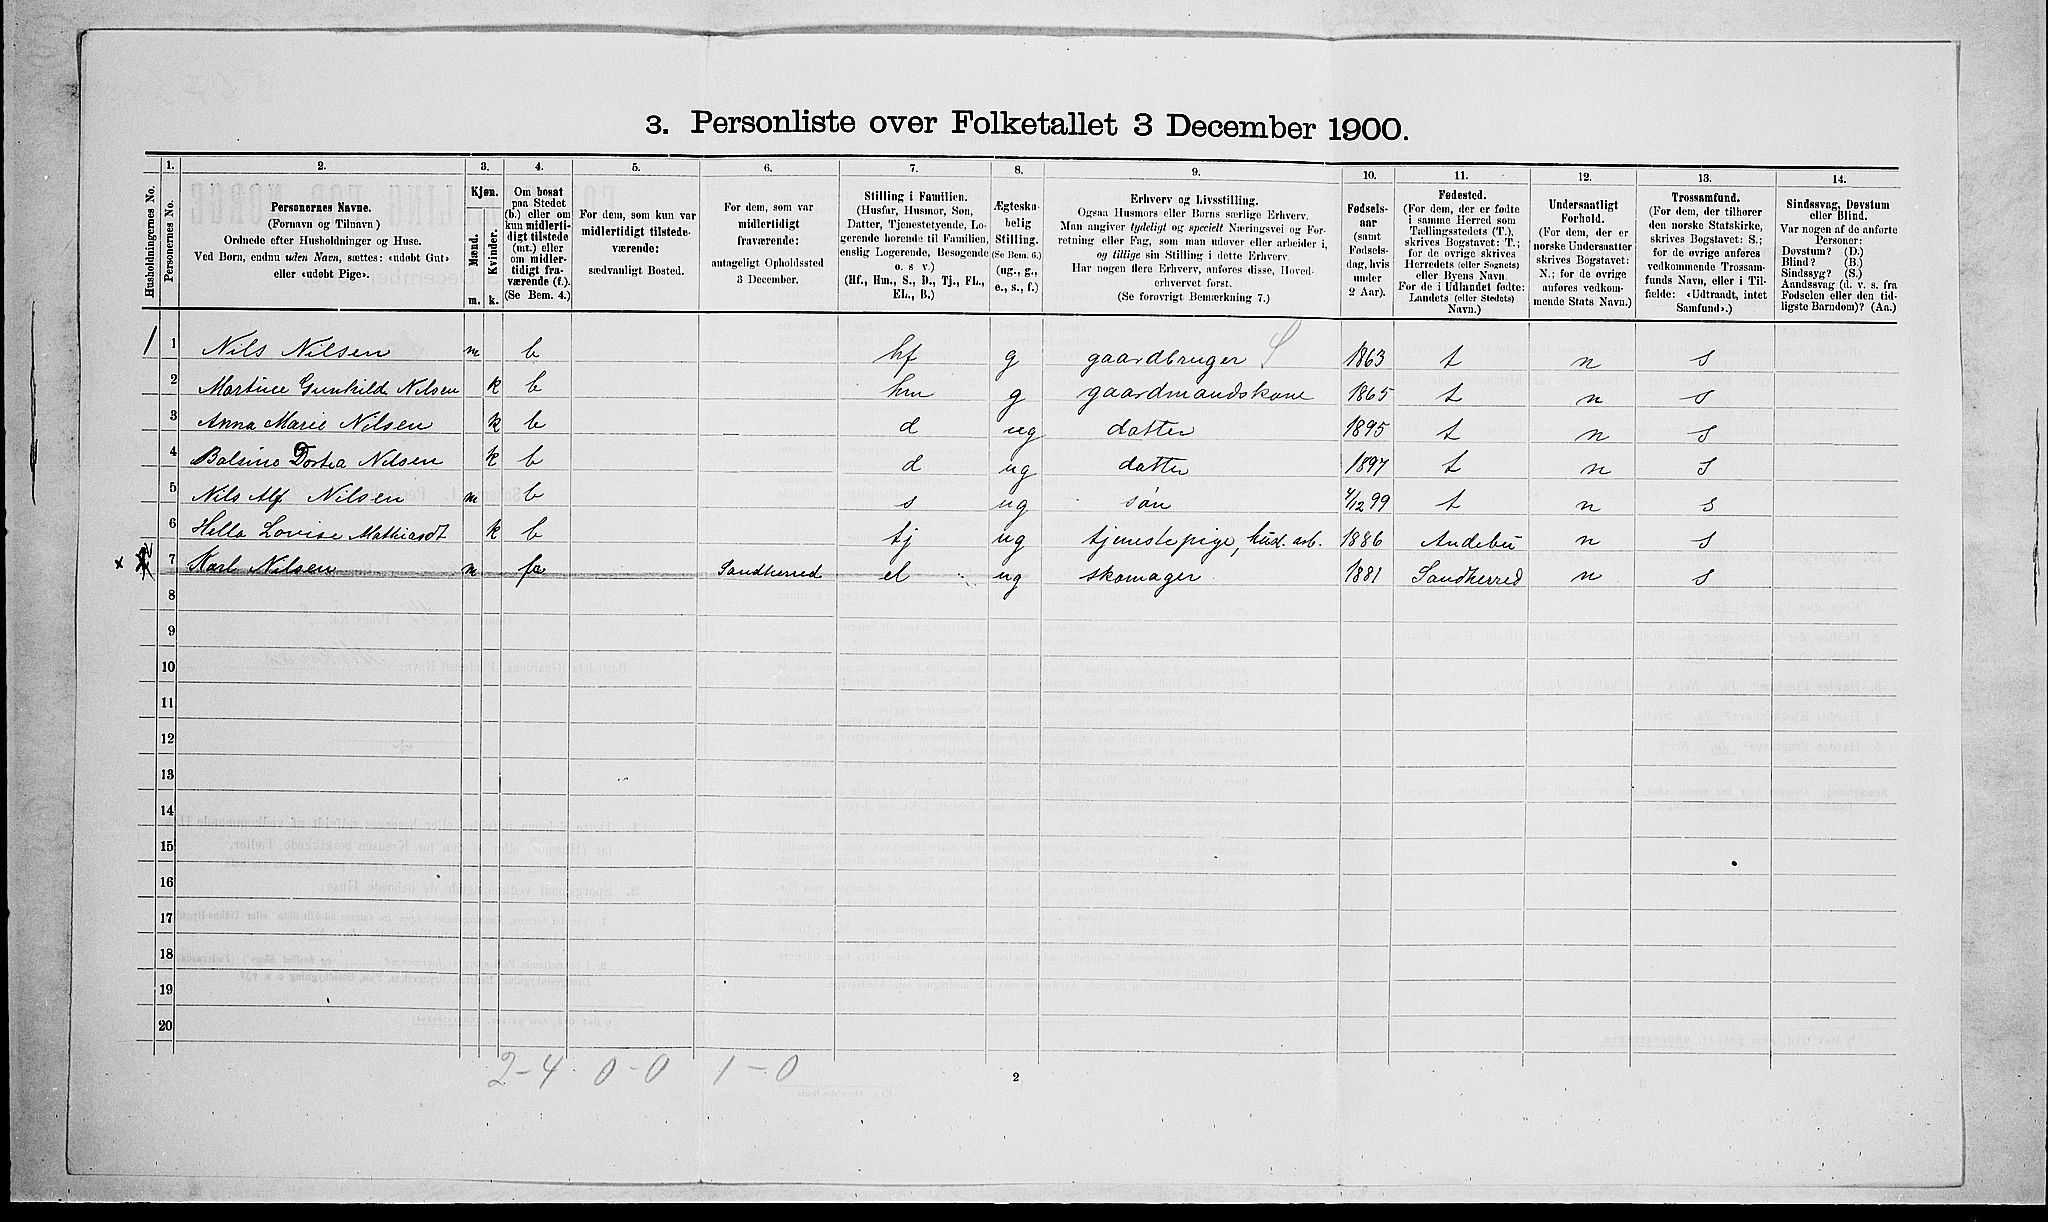 3. Personliste over Folketallet 3 December 1900.
Husholdningernes No.
1.
Personernes No.
2.
Personernes Navne.
(Fornavn og Tilnavn)
Ordnede efter Husholdninger og Huse.
Ved Børn, endnu uden Navn, sættes: «udøbt Gut»
eller «udøbt Pige».
3.
Kjøn.
Mænd.
Kvinder.
m. k.
4.
Om bosat
paa Stedet
(b.) eller om
kun midlerti-
digt tilstede
(mt.) eller
om midler-
tidigt fra-
værende (f.).
(Se Bem. 4.)
5.
For dem, som kun var
midlertidigt tilstede-
værende:
sædvanligt Bosted.
6.
For dem, som var
midlertidigt
fraværende:
antageligt Opholdssted
3 December.
7.
Stilling i Familien.
(Husfar, Husmor, Søn,
Datter, Tjenestetyende, Lo-
gerende hørende til Familien,
enslig Logerende, Besøgende
o. s v.)
(Hf., Hm., S., D., Tj., FL.,
EL., B.)
8.
Ægteska-
belig
Stilling.
(Se Bem. 6.)
(ug., g.,
e., s., f.)
9.
Erhverv og Livsstilling.
Ogsaa Husmors eller Børns særlige Erhverv.
Man angiver tydeligt og specielt Næringsvei og For-
retning eller Fag, som man udøver eller arbeider i,
og tillige sin Stilling i dette Erhverv.
Har nogen flere Erhverv, anføres disse, Hoved-
erhvervet først.
(Se forøvrigt Bemærkning 7.)
10.
Fødsels-
aar
(samt
Fødsels-
dag, hvis
under
2 Aar).
11.
Fødested.
(For dem, der er fødte
i samme Herred som
Tællingsstedets (T.),
skrives Bogstavet: T.;
for de øvrige skrives
Herredets (eller Sognets)
eller Byens Navn.
For de i Udlandet fødte:
Landets (eller Stedets)
Navn.)
12.
Undersaatligt
Forhold.
(For dem, der er
norske Undersaatter
skrives Bogstavet:
N.; for de øvrige
anføres vedkom-
mende Stats Navn.)
13.
Trossamfund.
(For dem, der tilhører
den norske Statskirke,
skrives Bogstavet: S.;
for de øvrige anføres
vedkommende Trossam-
funds Navn, eller i Til-
fælde: «Udtraadt, intet
Samfund».)
14.
Sindssvag, Døvstum
eller Blind.
Var nogen af de anførte
Personer:
Døvstum? (D.)
Blind? (B.)
Sindssyg? (S.)
Aandssvag (d. v. s. fra
Fødselen eller den tid-
ligste Barndom)? (Aa.)
1 1 Nils Nilsen m b hf g gaardbruger S 1863 t n s
2 Martine Gunhilde Nilsen k b hm g gaardmandskone 1865 t n s
3 Anna Marie Nilsen k b d ug datter 1895 t n s
4 Balsine Dortea Nilsen k b d ug datter 1897 t n s
5 Nils Alf Nilsen m b s ug søn 4/12 99 t n s
6 Hella Lovise Mathiasdt k b tj ug tjenestepige, husl. arb. 1886 Andebu n s
x 7 Karl Nilsen m fa Sandherred el ug skomager 1881 Sandherred n s
8
9
10
11
12
13
14
15
16
17
18
19
20
2-4 0-0 1-0
2